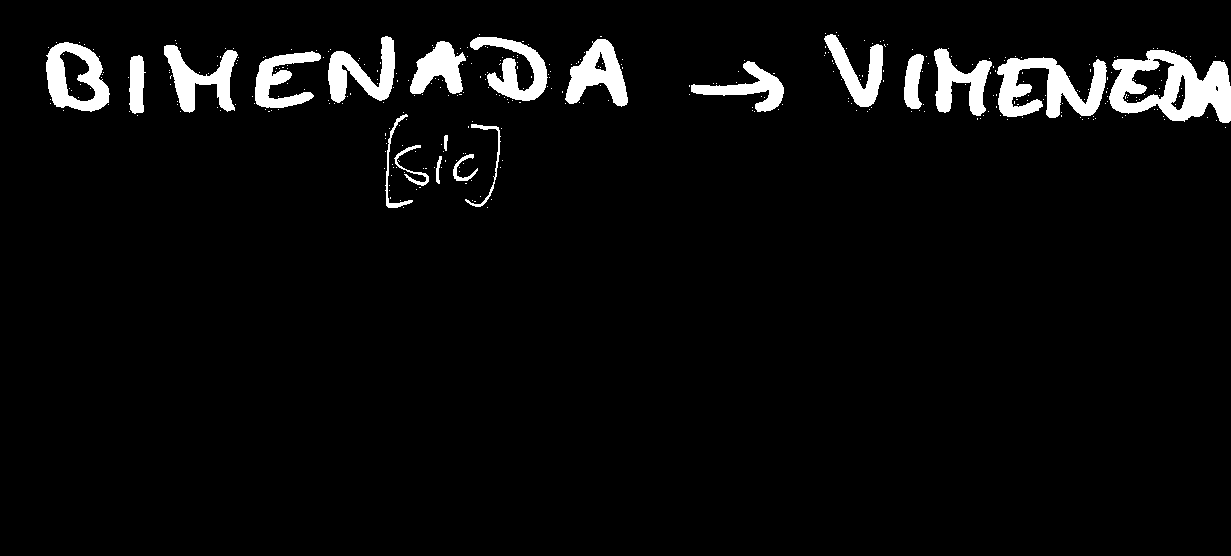 BIMENADA → VIMENEDA
[sic]